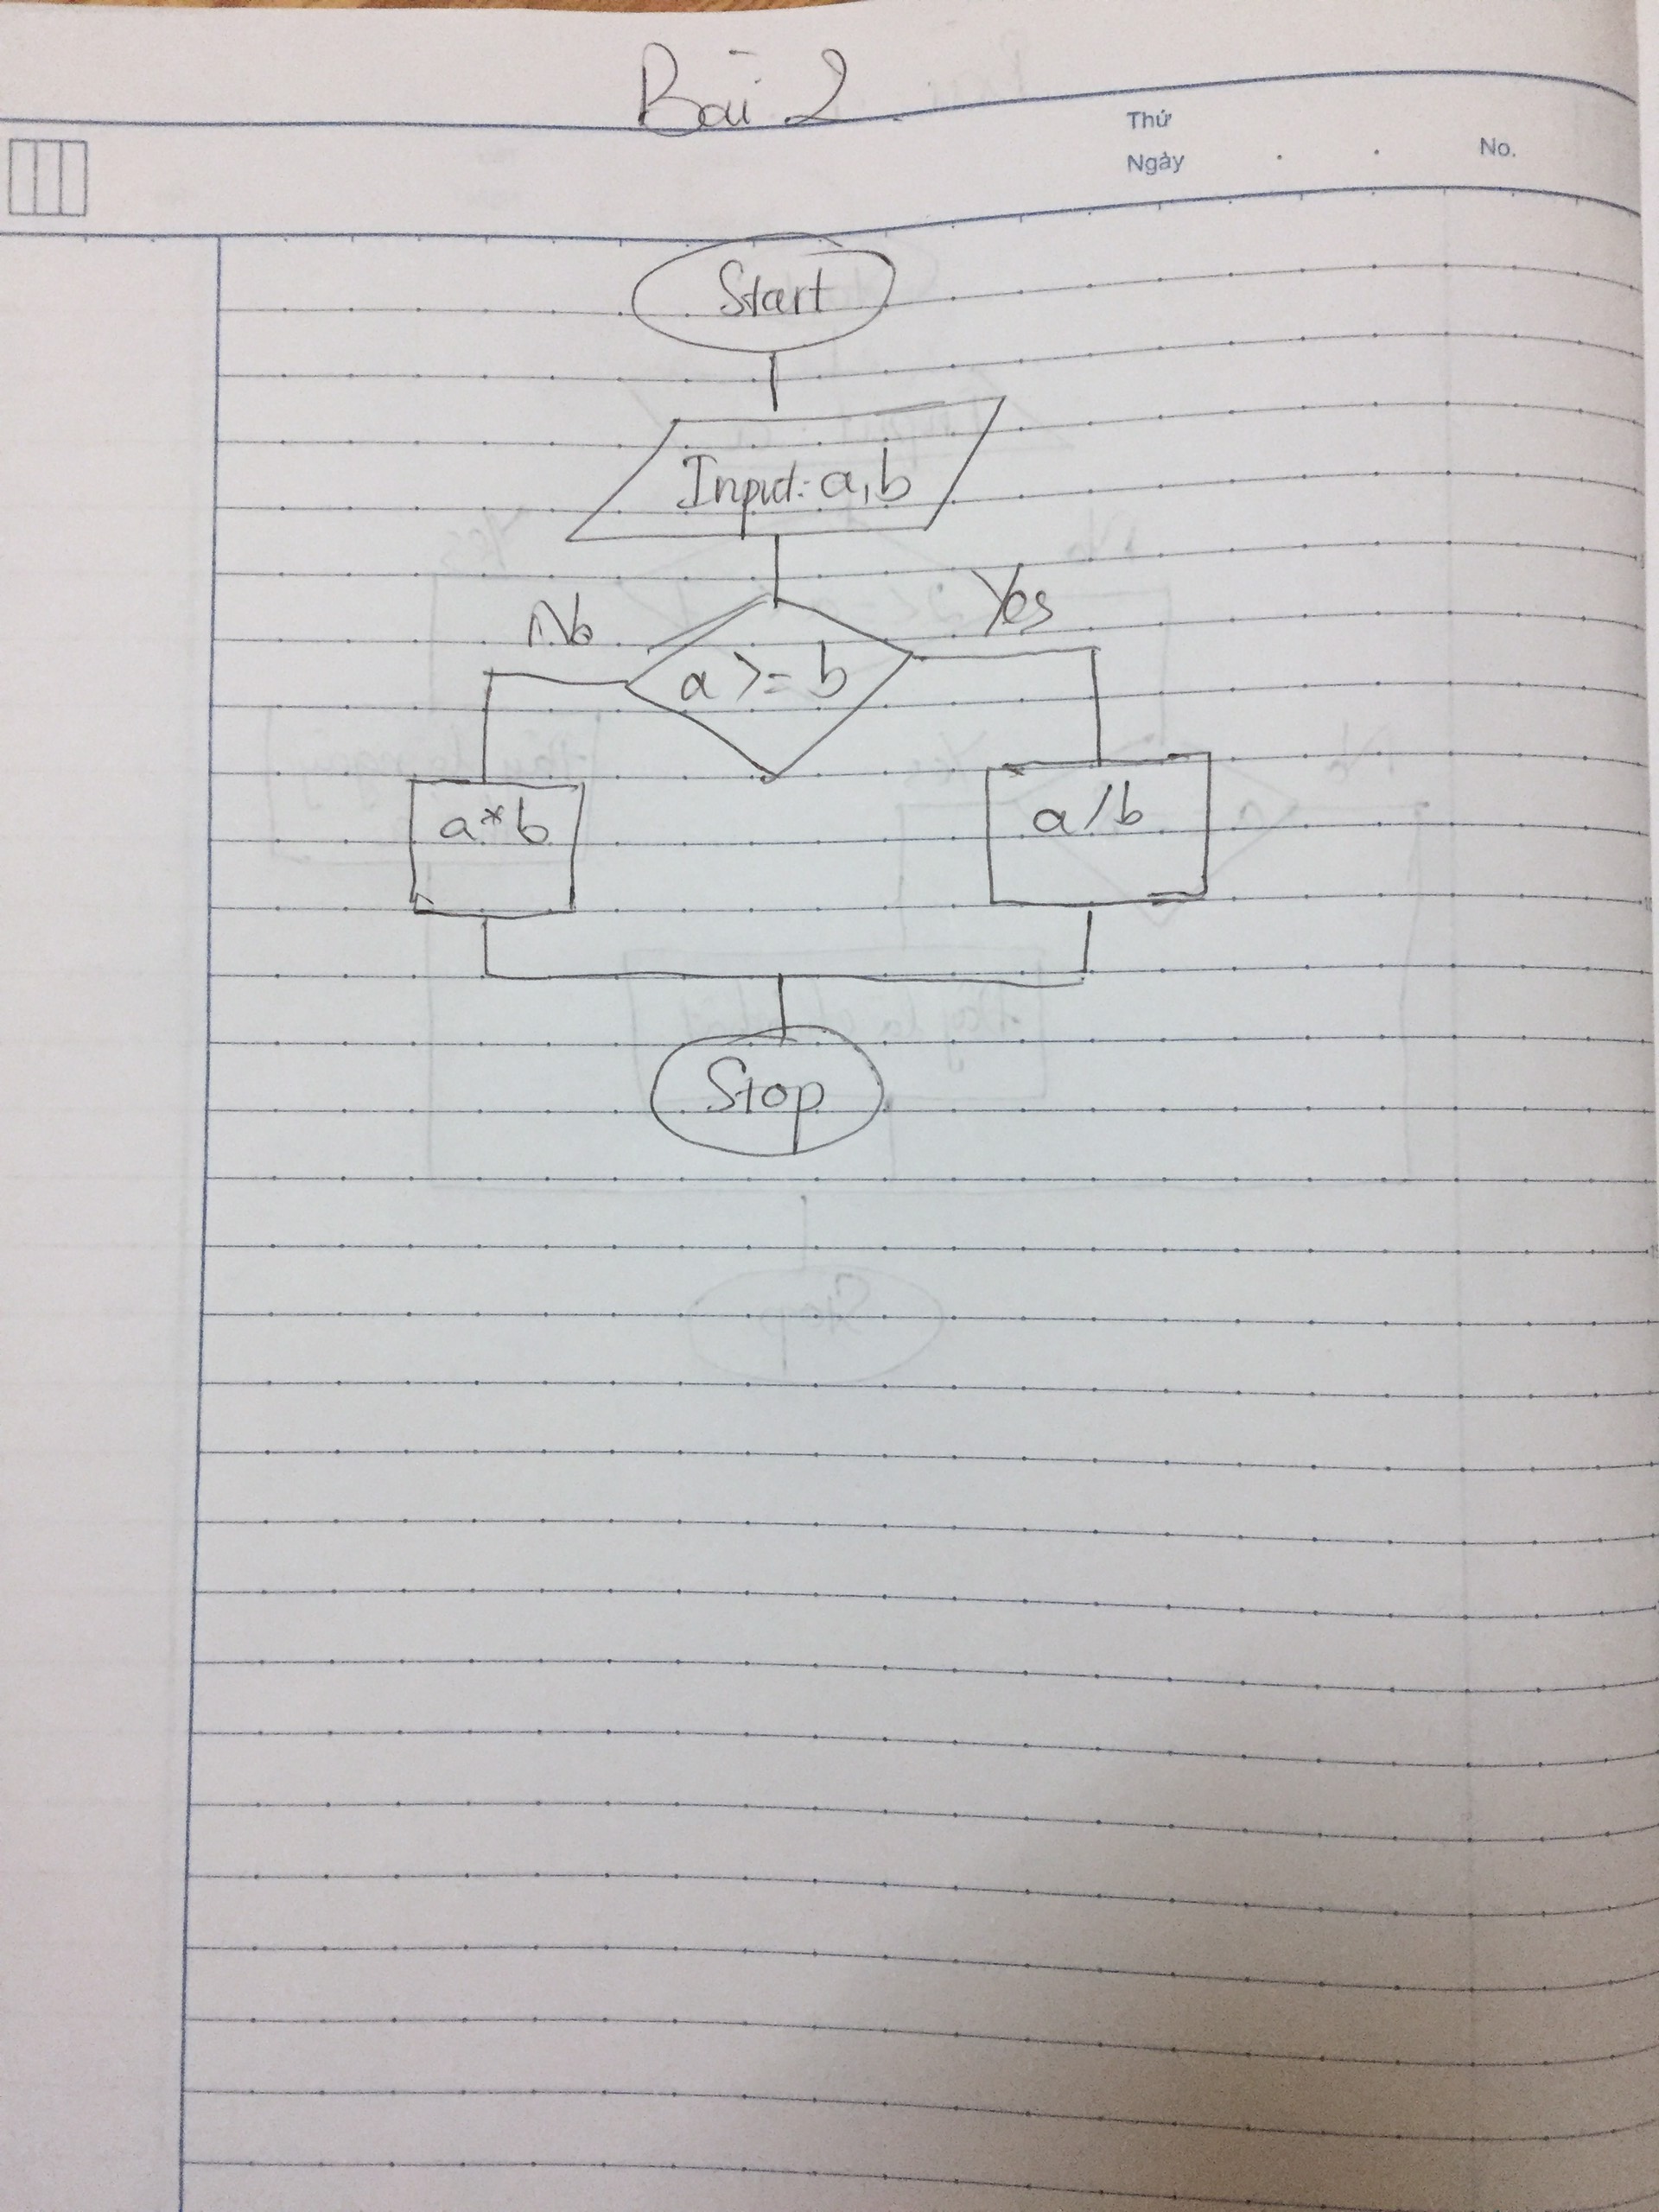 Bài 2
Thứ
Ngày
No.
Start
Input: a, b
No
Yes
a >= b
a * b
a / b
Stop